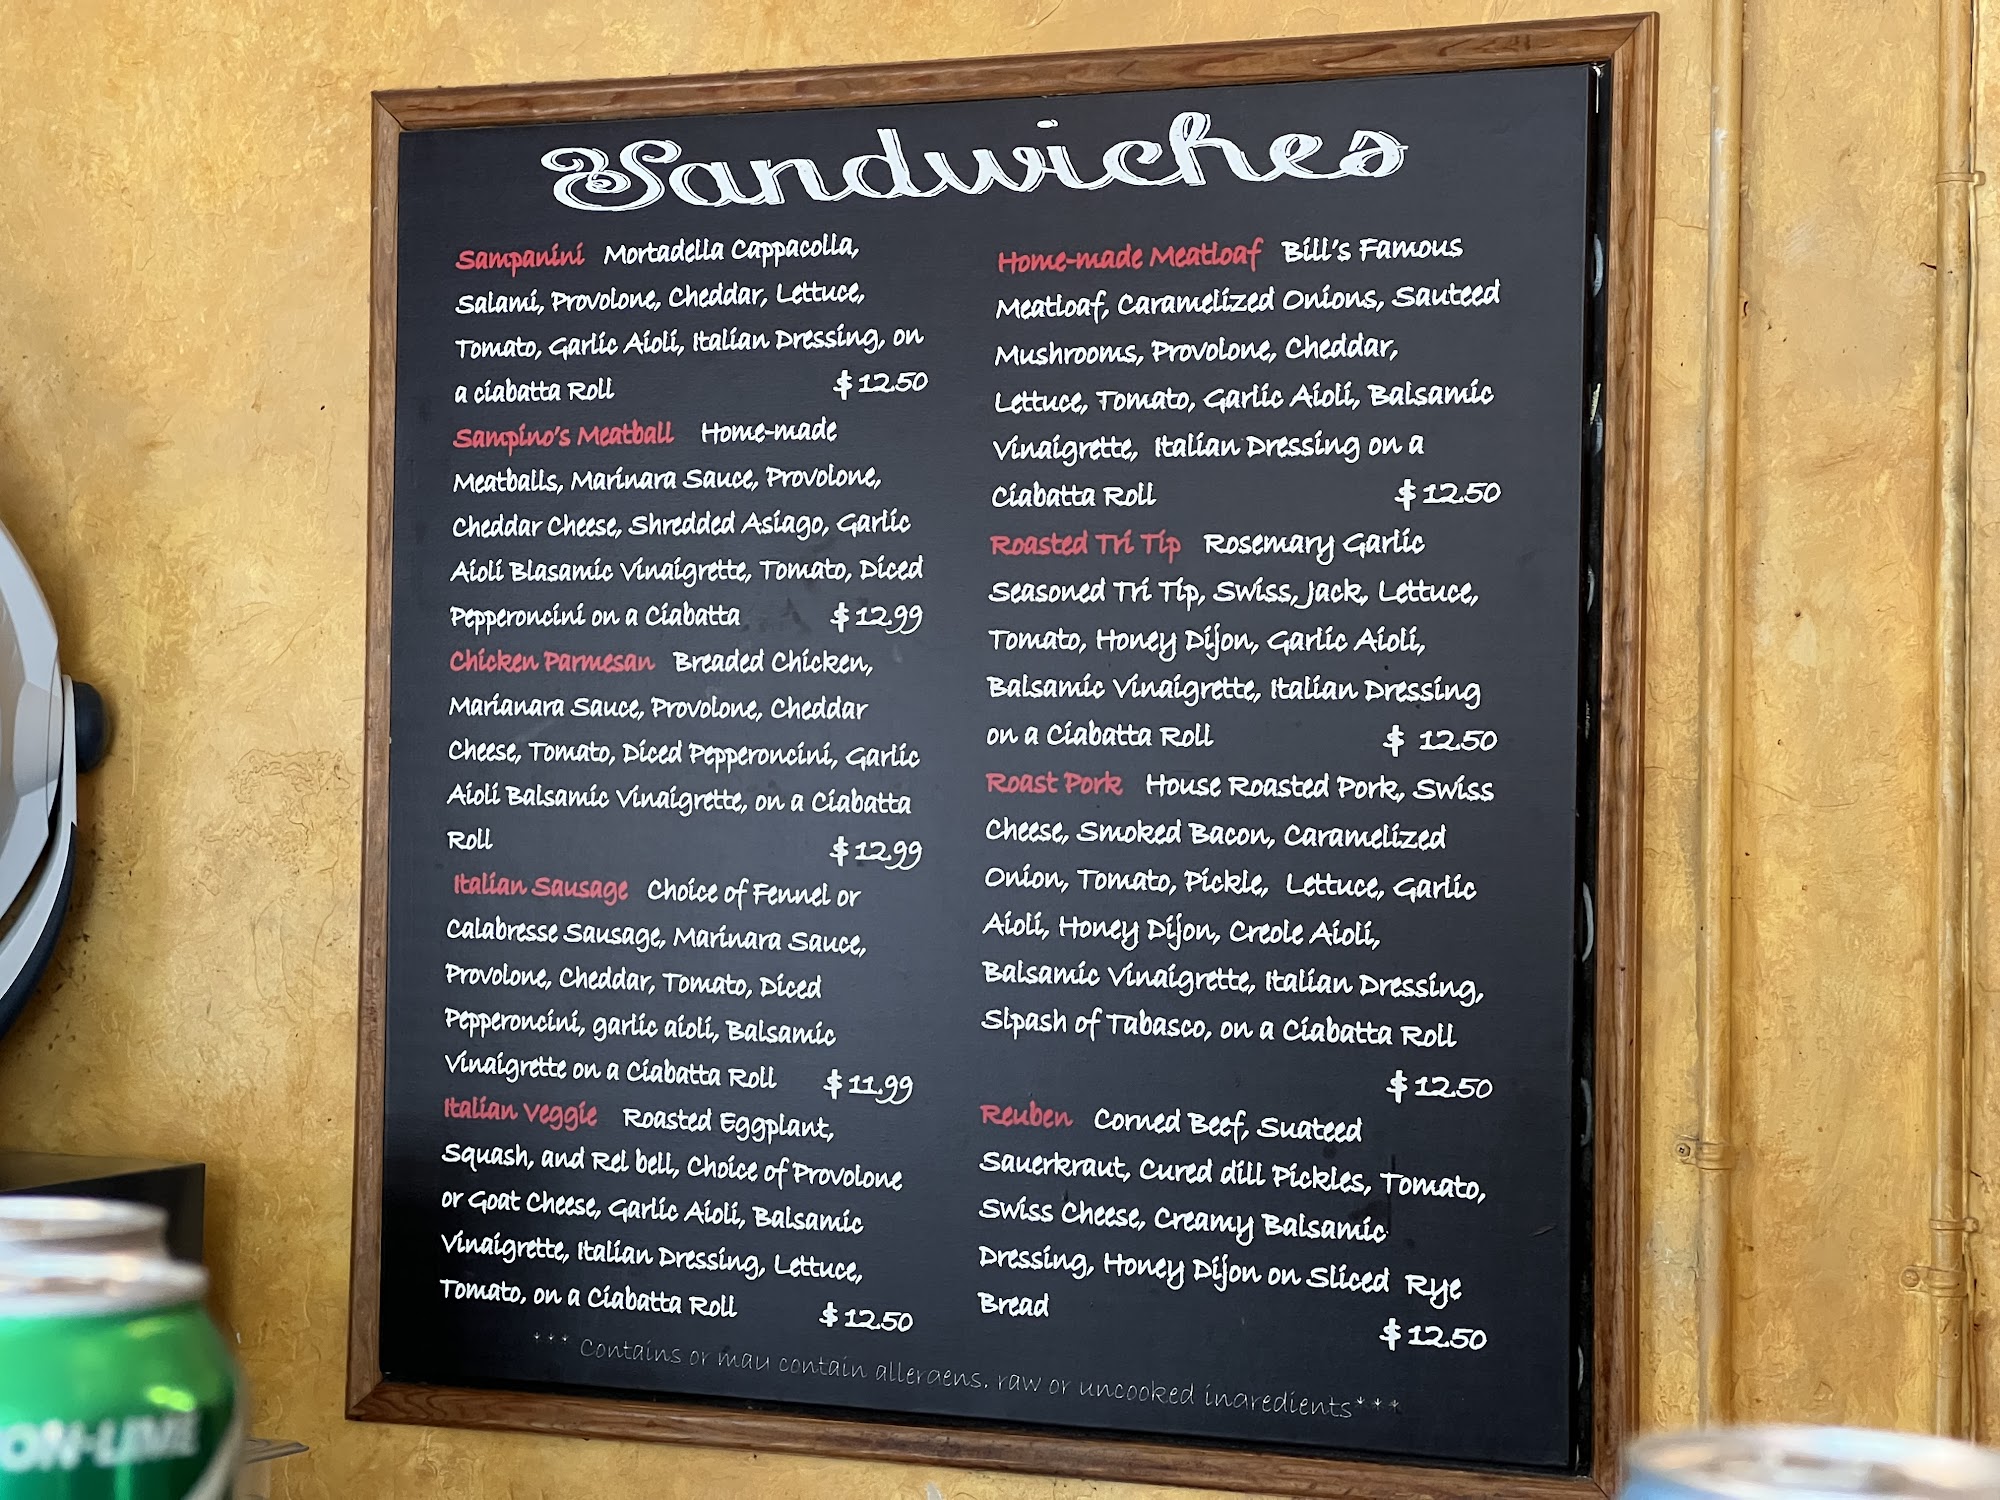 Sandwiches
Sampanini Mortadella Cappacolla,
Salami, Provolone, Cheddar, Lettuce,
Tomato, Garlic Aioli, Italian Dressing, on
a ciabatta Roll $12.50
Sampino's Meatball Home-made
Meatballs, Marinara Sauce, Provolone,
Cheddar Cheese, Shredded Asiago, Garlic
Aioli Blasamic Vinaigrette, Tomato, Diced
Pepperoncini on a Ciabatta $12.99
Chicken Parmesan Breaded Chicken,
Marianara Sauce, Provolone, Cheddar
Cheese, Tomato, Diced Pepperoncini, Garlic
Aioli Balsamic Vinaigrette, on a Ciabatta
Roll $12.99
Italian Sausage Choice of Fennel or
Calabresse Sausage, Marinara Sauce,
Provolone, Cheddar, Tomato, Diced
Pepperoncini, garlic aioli, Balsamic
Vinaigrette on a Ciabatta Roll $11.99
Italian Veggie Roasted Eggplant,
Squash, and Rel bell, Choice of Provolone
or Goat Cheese, Garlic Aioli, Balsamic
Vinaigrette, Italian Dressing, Lettuce,
Tomato, on a Ciabatta Roll $12.50
Home-made Meatloaf Bill's Famous
Meatloaf, Caramelized Onions, Sauteed
Mushrooms, Provolone, Cheddar,
Lettuce, Tomato, Garlic Aioli, Balsamic
Vinaigrette, Italian Dressing on a
Ciabatta Roll $12.50
Roasted Tri Tip Rosemary Garlic
Seasoned Tri Tip, Swiss, Jack, Lettuce,
Tomato, Honey Dijon, Garlic Aioli,
Balsamic Vinaigrette, Italian Dressing
on a Ciabatta Roll $ 12.50
Roast Pork House Roasted Pork, Swiss
Cheese, Smoked Bacon, Caramelized
Onion, Tomato, Pickle, Lettuce, Garlic
Aioli, Honey Dijon, Creole Aioli,
Balsamic Vinaigrette, Italian Dressing,
Slpash of Tabasco, on a Ciabatta Roll
$12.50
Reuben Corned Beef, Suateed
Sauerkraut, Cured dill Pickles, Tomato,
Swiss Cheese, Creamy Balsamic
Dressing, Honey Dijon on Sliced Rye
Bread
$12.50
*** Contains or may contain allergens, raw or uncooked ingredients***
ON-LIME